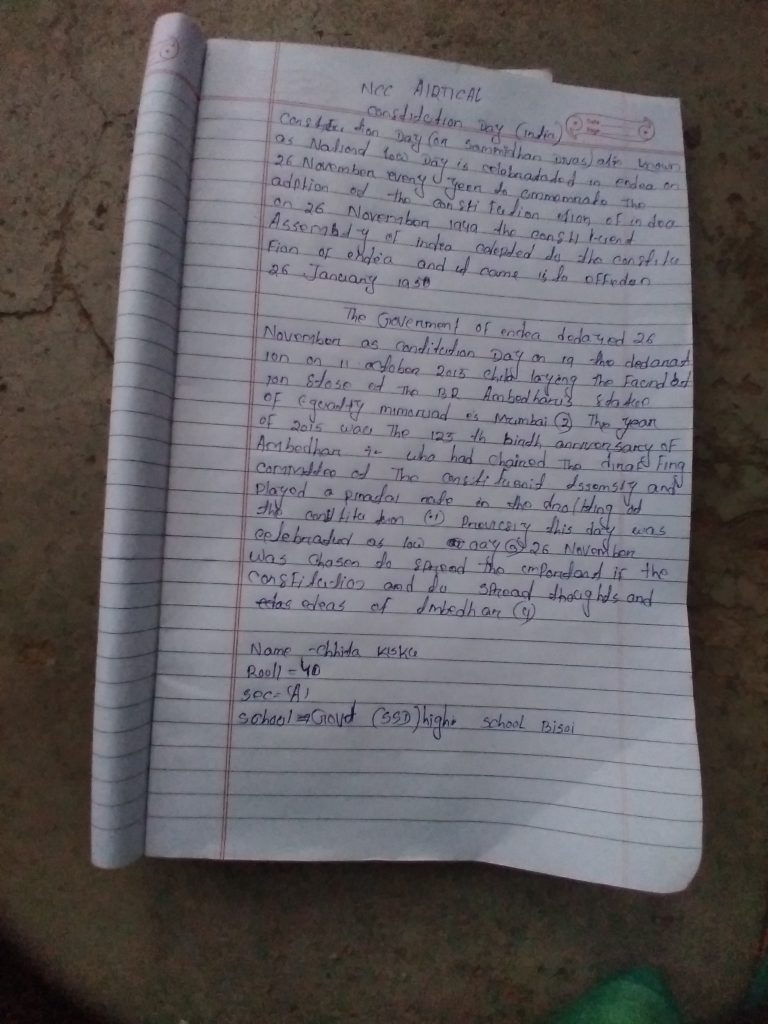 NCC AIRTICAL
Constidution Day (india)
Constitu tion Day (or sammidhan Divas) also known
as National low Day is celebraduded in endea on
26 November every yeer to commomnate the
adption od the consti tution of india
on 26 November 1949 the consti tuend
Assembly of indea to the constitu
tion of endea and it came
26 January 1950
The Government of endea dedayed 26
November as condidution Day on 19 the dedanat
ion on 11 octobor 2015 laying the Faundat
ion of The BR Ambedharis
OF Equality mimoruad es Mumbai (2) The year
of 2015 was The 125 th bindh anniversary of
Ambedhar who had chained The
Commiddeo of The constituent Assemsly and
Played a in the drafding od
the constitu tion Previosly this day was
celebraded as low day 26 November
was chosen do spread the empondant if the
Constitution and do spread thoughds and
edeas of Ambedhar (4)
Name - Chhita Kisku
Rooll = 40
Sec = 'A'
School = Govt (SSD) high school Bisoi